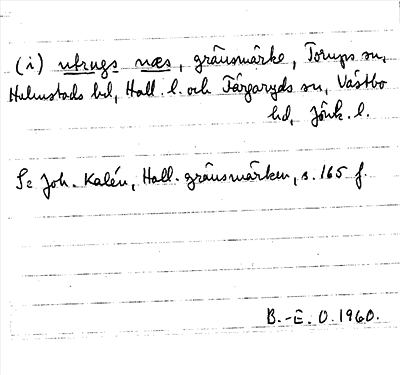 (i) utrugs næs, gränsmärke, Torups sn,
Halmstads hd, Hall. l. och Färgaryds sn, Västbo
hd, Jönk. l.
Se Joh. Kalén, Hall. gränsmärken, s. 165 f.
B.-E. O. 1960.